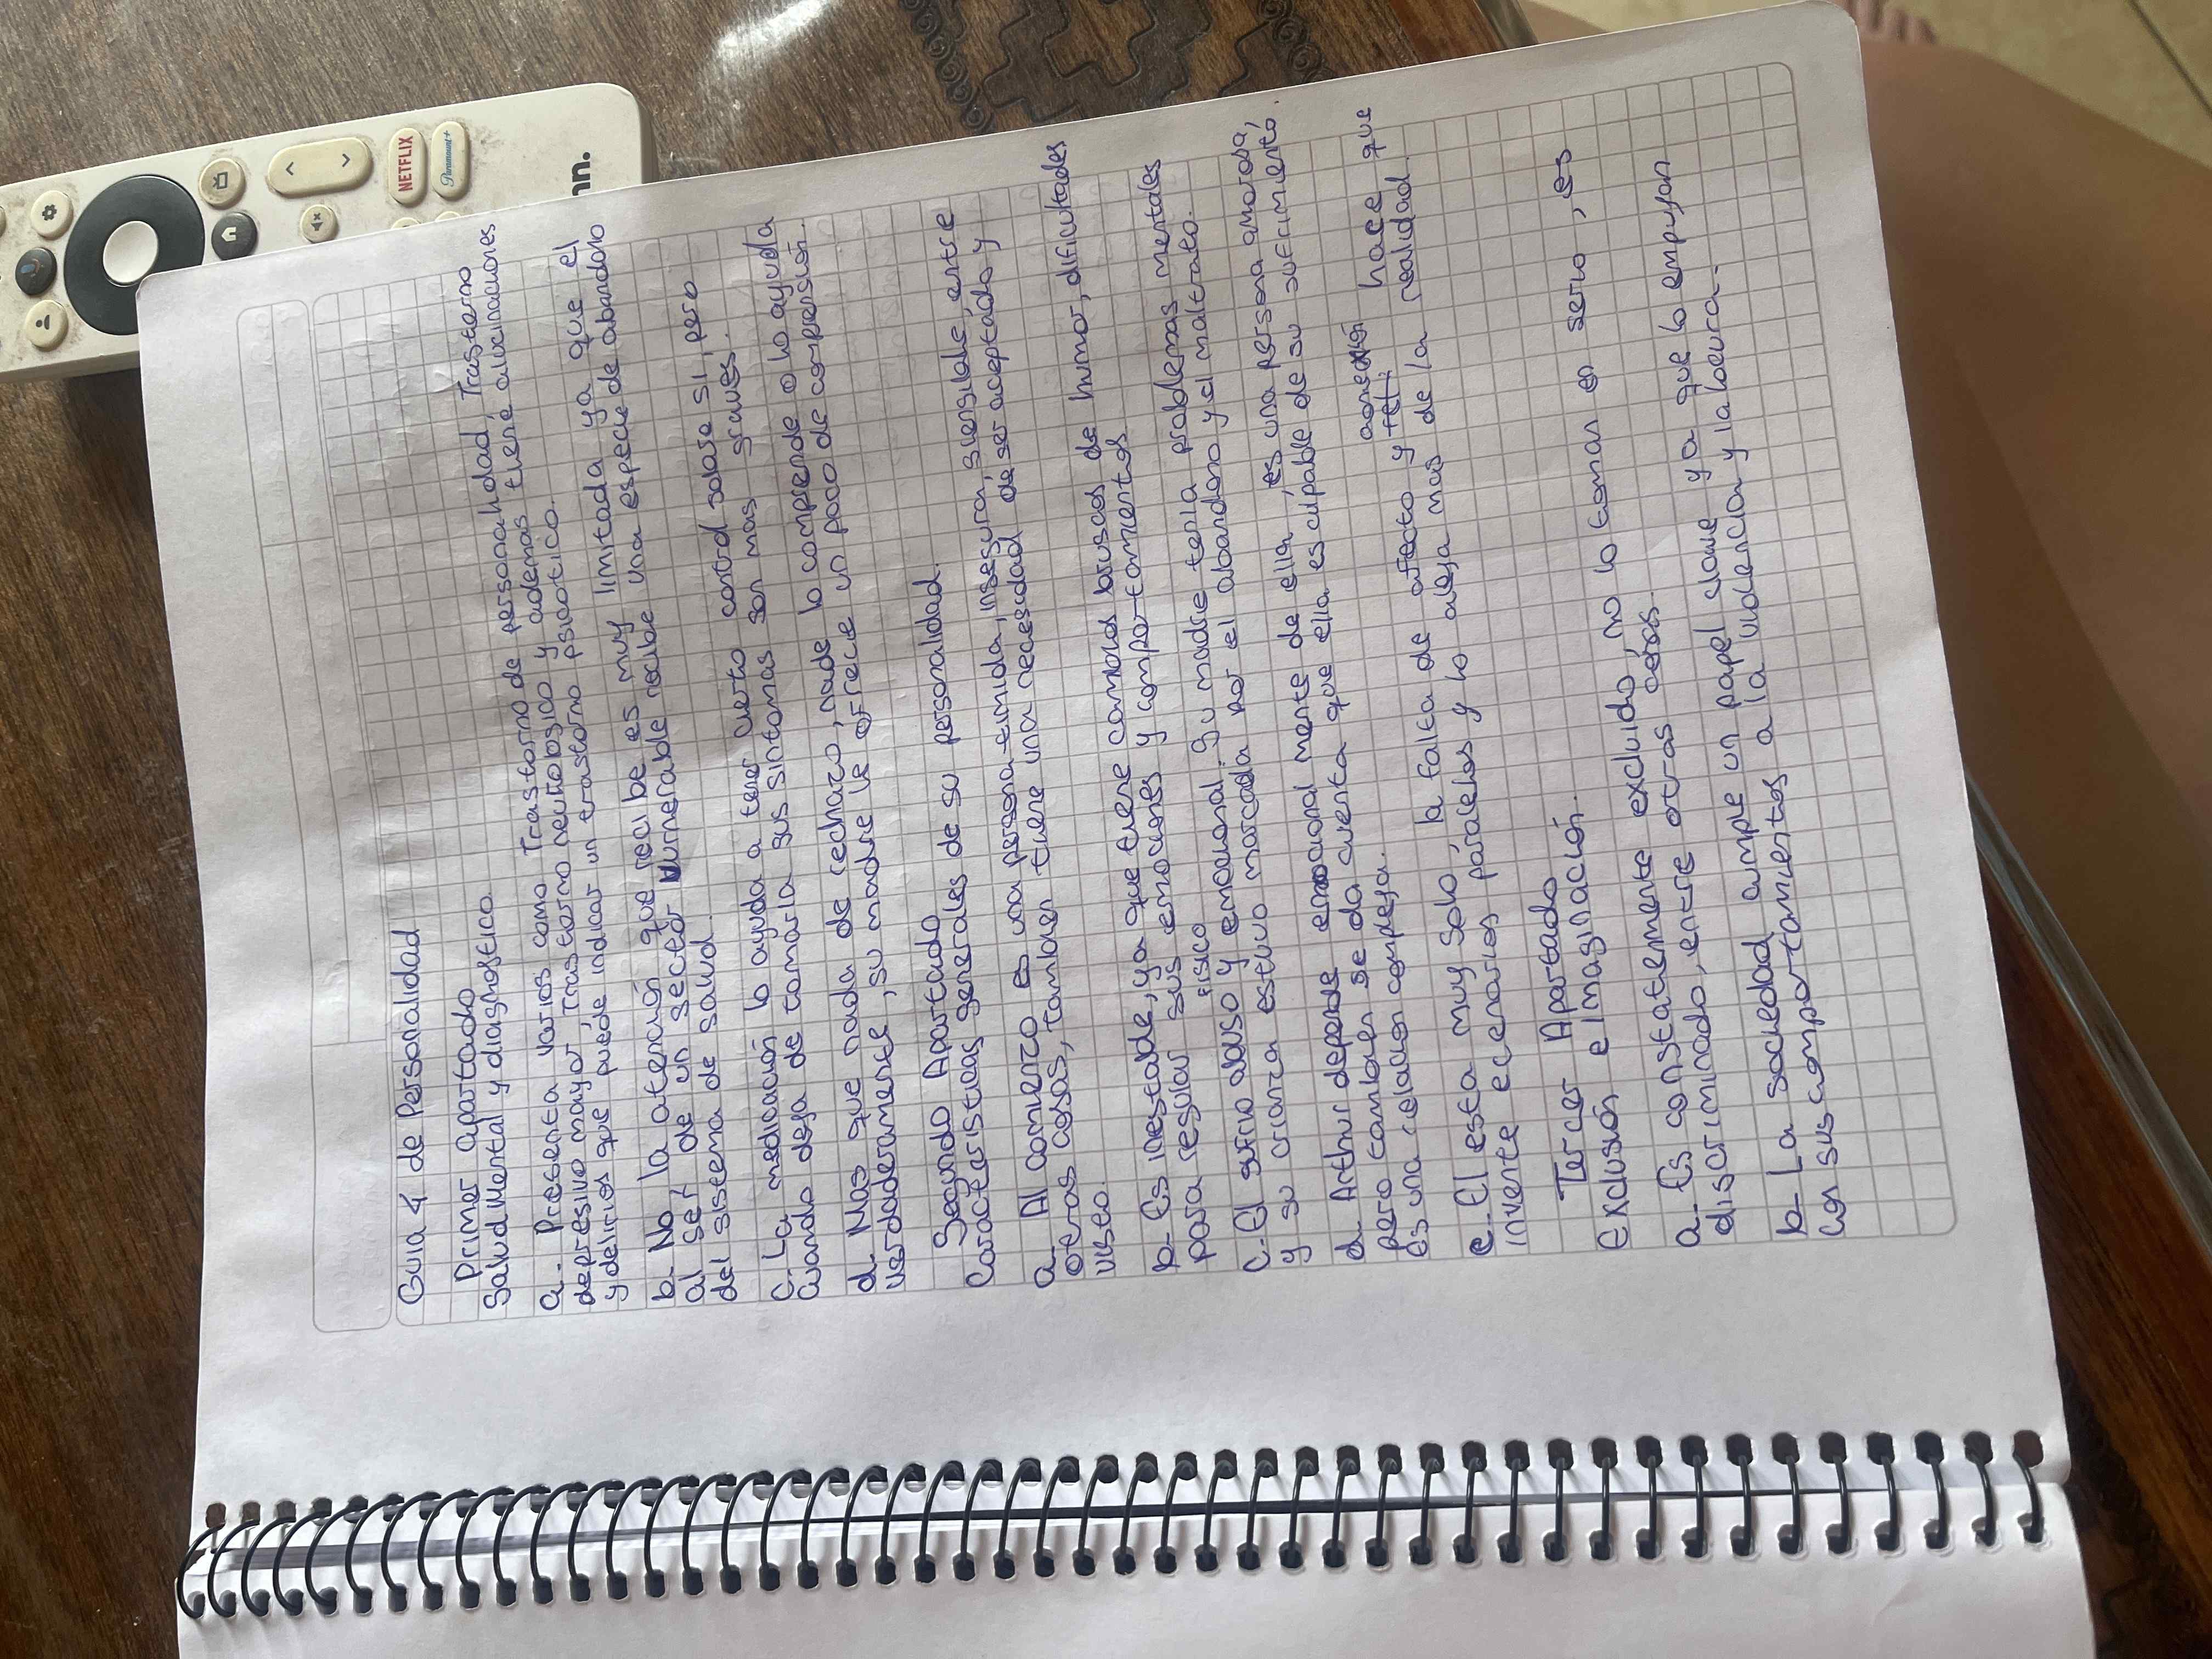 Guia 4 de Personalidad
Primer apartado
Salud Mental y diagnostico.
a- Presenta varios como Trastorno de personalidad, Trastorno
depresivo mayor, Trastorno neurologico y ademas tiene alucinaciones
y delirios que puede indicar un trastorno psicotico.
b- No, la atención que recibe es muy limitada ya que el
al ser de un sector vurnerable recibe una especie de abandono
del sistema de salud.
c- La medicación lo ayuda a tener cierto control sobre si, pero
cuando deja de tomarla sus sintomas son mas graves.
d- Mas que nada de rechazo, nade lo comprende o lo ayuda
verdaderamente, su madre le ofrece un poco de compresión.
Segundo Apartado
Caracteristicas generales de su personalidad.
a- Al comienzo es una persona timida, insegura, sensible, entre
otras cosas, tambien tiene una necesidad de ser aceptado y
visto.
b- Es inestable, ya que tiene cambios bruscos de humor, dificultades
para regular sus emociones y comportamientos
c- El sufrio abuso fisico y emocional. Su madre tenia problemas mentales
y su crianza estuvo marcada por el abandono y el maltrato.
d- Arthur depende emocional mente de ella, es una persona amorosa,
pero tambien se da cuenta que ella es culpable de su sufrimiento
Es una relacion compleja.
e- El esta muy solo, la falta de afecto y conexión hace que
invente ecenarios paralelos y lo aleja mas de la realidad.
Tercer Apartado
Exclusión e Imaginación.
a- Es constatemente excluido, no lo toman en serio, es
discriminado, entre otras cosas.
b- La sociedad cumple un papel clave ya que lo empujan
con sus comportamientos a la violencia y la locura.
NETFLIX
Paramount+
nn.